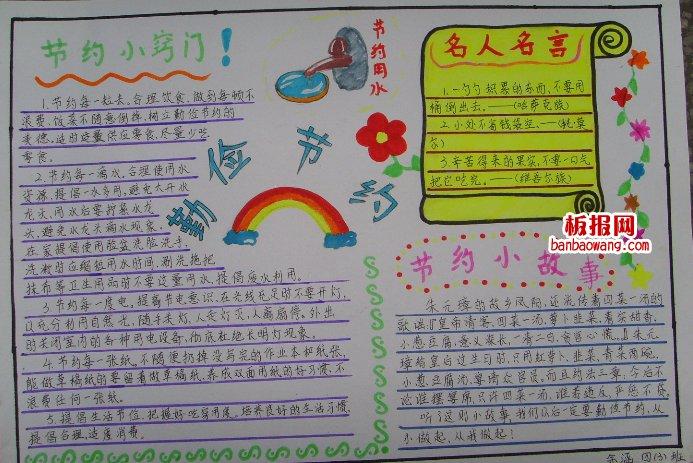 节约小窍门！
1.节约每一粒粮食,合理饮食,做到每顿不
浪费,饭菜不随意倒掉,树立勤俭节约的
美德,适时适量供应零食,尽量少吃
零食。
2.节约每一滴水,合理使用水
资源,提倡一水多用,避免大开水
龙头,用水后要拧紧水龙
头,避免水龙头滴水现象,
在家提倡使用脸盆洗脸洗手,
洗澡时应缩短用水时间,涮洗拖把
抹布等卫生用品时不要过量用水,提倡废水利用。
3.节约每一度电,提高节电意识,在光线充足时不要开灯,
以充分利用自然光,随手关灯,人走灯灭,人离扇停,外出
时关闭室内的各种用电设备,彻底杜绝长明灯现象。
4.节约每一张纸,不随便扔掉没写完的作业本和纸张,
能做草稿纸的要留着做草稿纸,养成双面用纸的好习惯,不
浪费任何一张纸。
5.提倡生活节俭,把握好吃穿用度,培养良好的生活习惯,
提倡合理,适度消费。
节约用水
勤俭节约
名人名言
1.一勺勺积累的东西,不要用
桶倒出去。——(哈萨克族)
2.小处不省钱袋空。——
3.辛苦得来的果实,不要一口气
把它吃完。——(维吾尔族)
板报网
banbaowang.com
节约小故事
朱元璋的故乡凤阳,还流传着四菜一汤的
歌谣『皇帝请客,四菜一汤,萝卜韭菜,着实甜香,
小葱豆腐,意义深长,一清二白,贪官心慌。』朱元
璋给皇后过生日时,只用红萝卜、韭菜,青菜两碗,
小葱豆腐汤,宴请众官员。而且约法三章:今后不
论谁摆宴席,只许四菜一汤,谁若违反,严惩不贷。
听了这则小故事,我们以后一定要勤俭节约,从
小做起,从我做起!
四(3)班